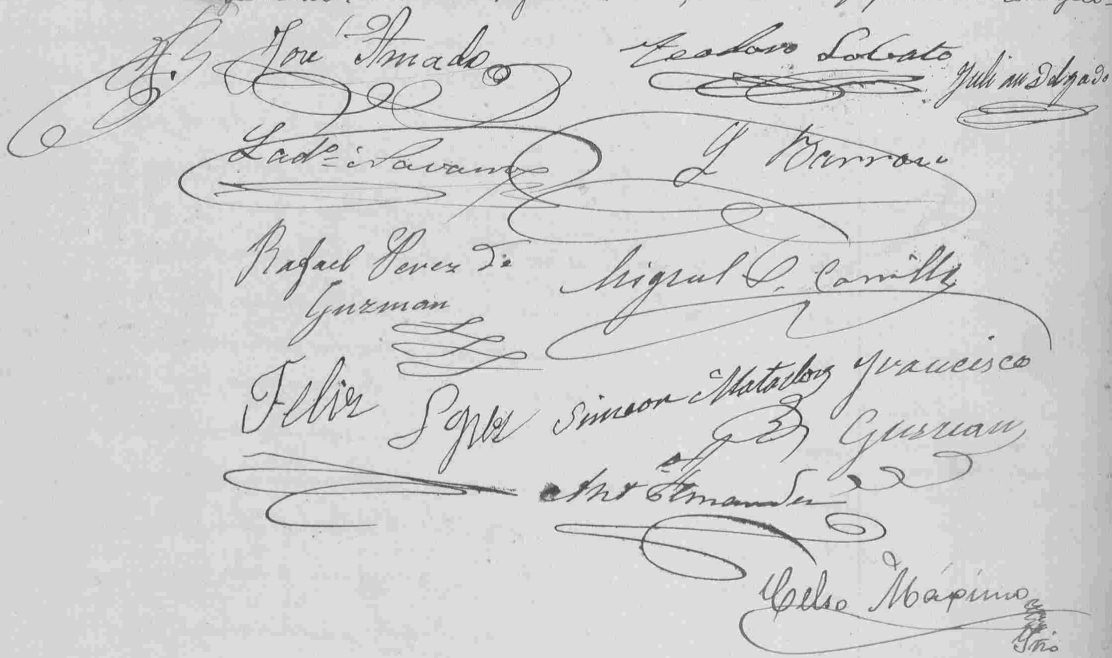 José Amado
Teodoro Lobato
Julian Delgado
Lad.º Navarro
G Barroso
Rafael Perez de
Guzman
Miguel S. Carrillo
Felix Lopez
Simeon Matarlorz
Francisco
Guzman
Ant. Fernandez
Celso Máximo
Srio